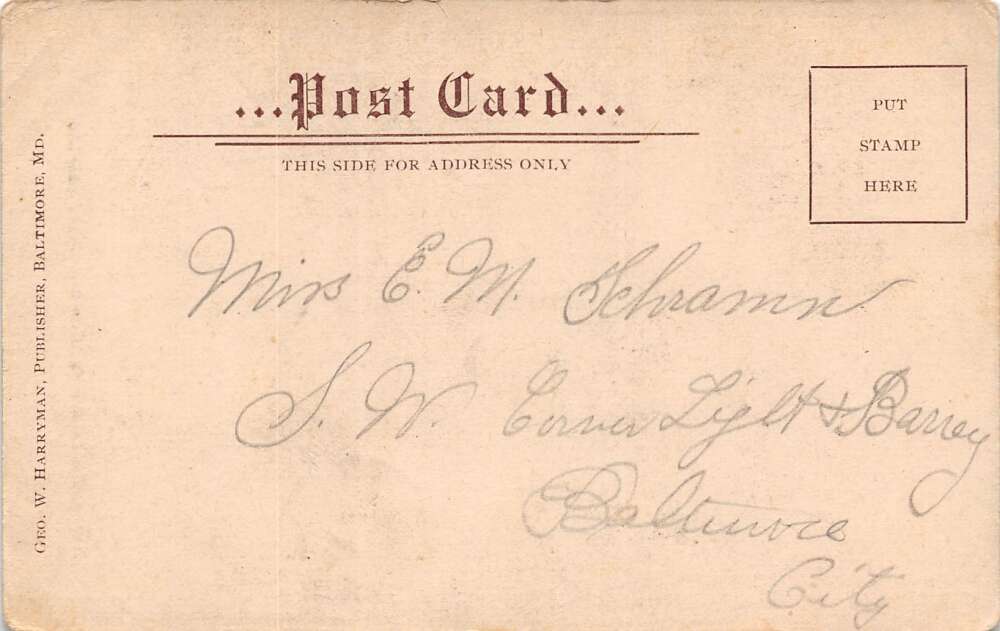 ...Post Card...
THIS SIDE FOR ADDRESS ONLY
PUT
STAMP
HERE
Miss E. M. Schramm
S. W. Corner Light & Barrey
Baltimore
City
GEO. W. HARRYMAN, PUBLISHER, BALTIMORE, MD.